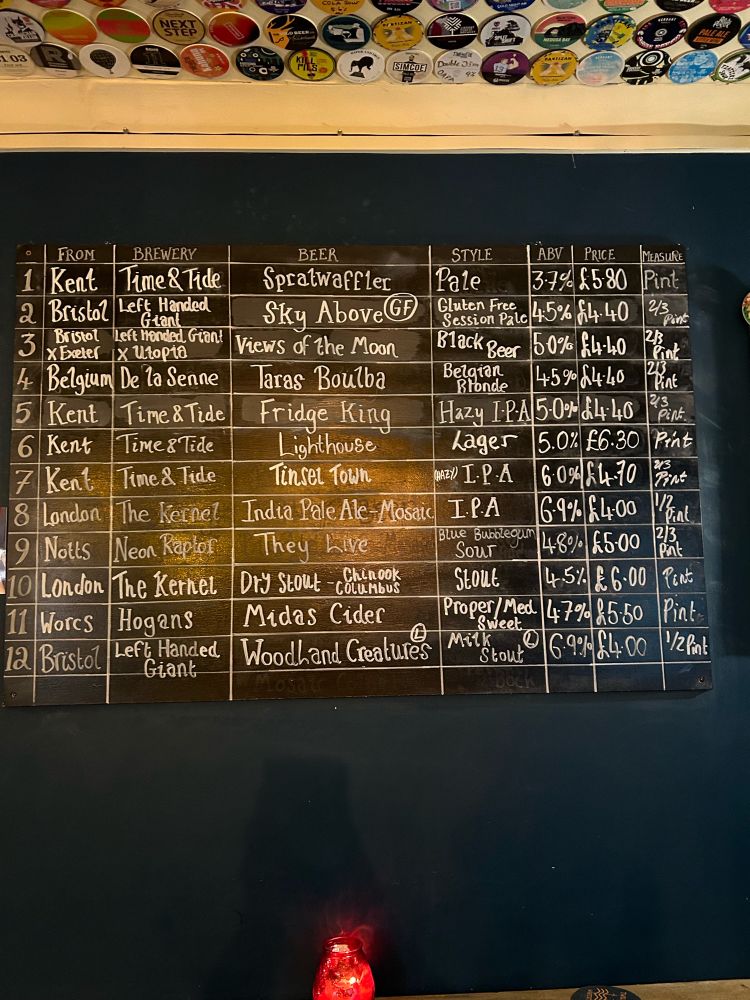 NEXT STEP
PARTIZAN
KILL PILS
SIMCOE
PARTIZAN
PALE ALE
FROM BREWERY BEER STYLE ABV PRICE MEASURE
1 Kent Time & Tide Spratwaffler Pale 3.7% £5.80 Pint
2 Bristol Left Handed Giant Sky Above GF Gluten Free Session Pale 4.5% £4.40 2/3 Pint
3 Bristol x Exeter Left Handed Giant x Utopia Views of the Moon Black Beer 5.0% £4.40 2/3 Pint
4 Belgium De la Senne Taras Boulba Belgian Blonde 4.5% £4.40 2/3 Pint
5 Kent Time & Tide Fridge King Hazy I.P.A 5.0% £4.40 2/3 Pint
6 Kent Time & Tide Lighthouse Lager 5.0% £6.30 Pint
7 Kent Time & Tide Tinsel Town (HAZY) I.P.A 6.0% £4.70 2/3 Pint
8 London The Kernel India Pale Ale - Mosaic I.P.A 6.9% £4.00 1/2 Pint
9 Notts Neon Raptor They Live Blue Bubblegum Sour 4.8% £5.00 2/3 Pint
10 London The Kernel Dry Stout - Chinook Columbus Stout 4.5% £6.00 Pint
11 Worcs Hogans Midas Cider Proper/Med Sweet 4.7% £5.50 Pint
12 Bristol Left Handed Giant Woodland Creatures L Milk Stout L 6.9% £4.00 1/2 Pint